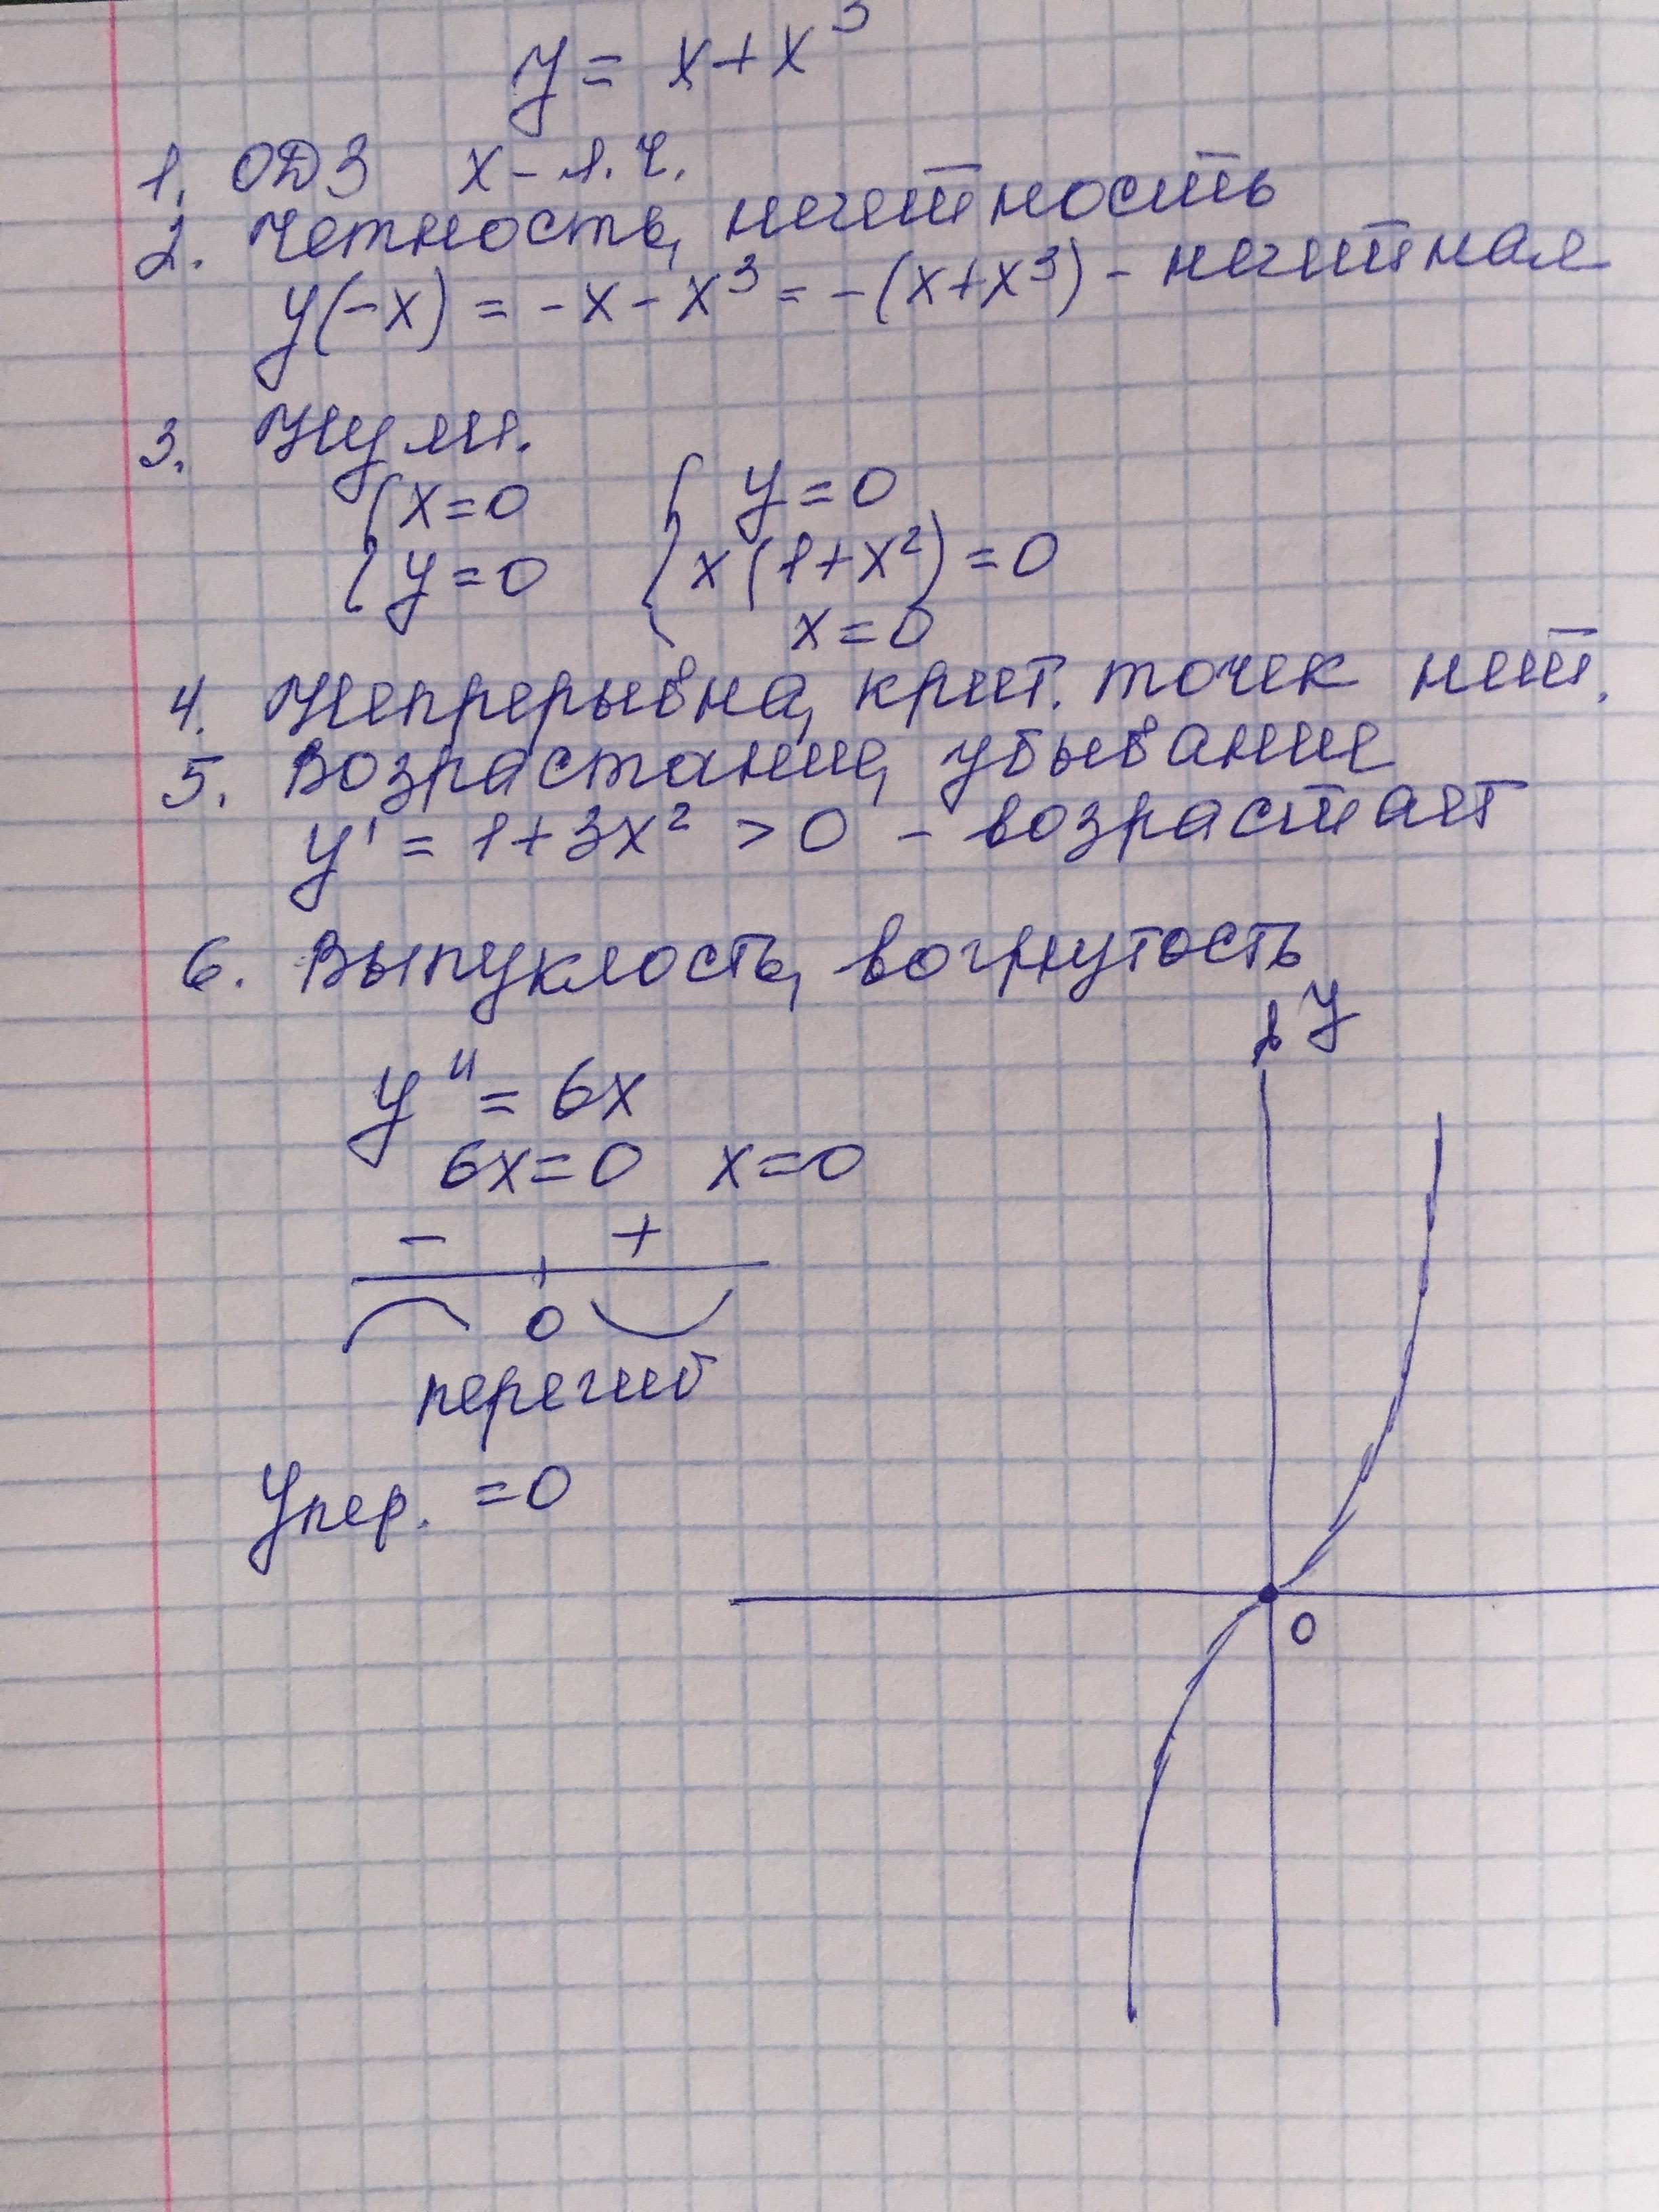 y = x + x³
1. ОДЗ x – л.ч.
2. Четность, нечетность
y(-x) = -x - x³ = -(x+x³) - нечетная
3. Нули.
{ x=0 { y=0
y=0 x(1+x²)=0
x=0
4. Непрерывна, крит. точек нет.
5. Возрастание, убывание
y' = 1+3x² > 0 – возрастает
6. Выпуклость, вогнутость
y
y'' = 6x
6x=0 x=0
– +
0
перегиб
yпер. =0
0